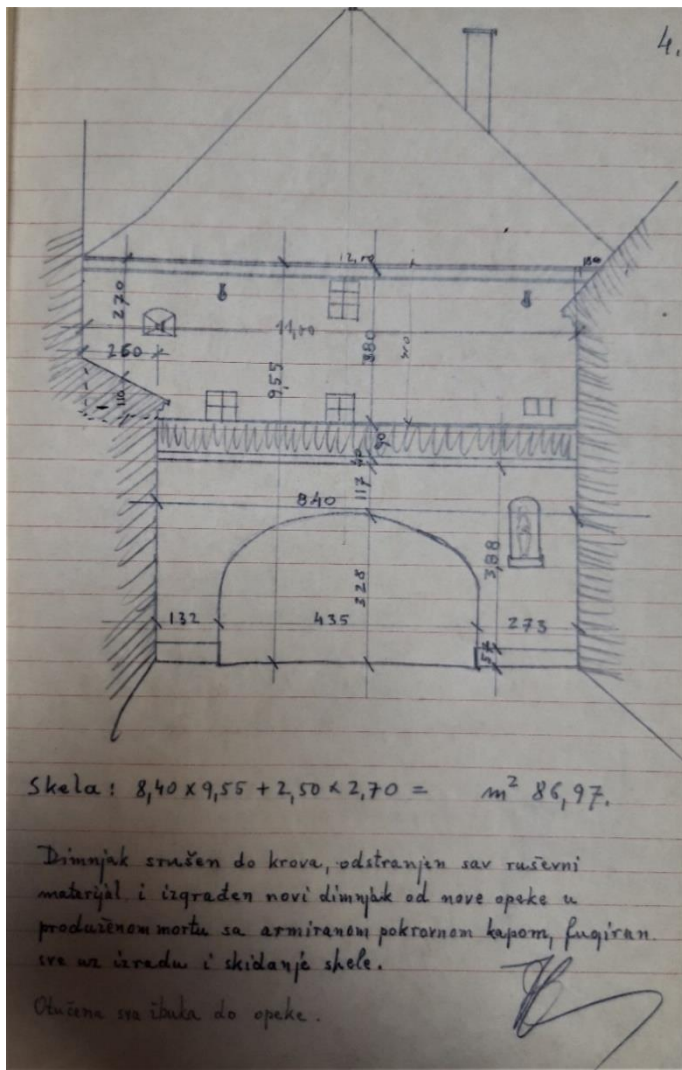 4.
12,10
130
270
11,00
260
380
9,55
110
90
117
840
328
3,88
132
435
273
57
Skela: 8,40 x 9,55 + 2,50 x 2,70 = m² 86,97.
Dimnjak srušen do krova, odstranjen sav ruševni
materijal i izgrađen novi dimnjak od nove opeke u
produženom mortu sa armiranom pokrovnom kapom, fugiran
sve uz izradu i skidanje skele.
Otučena sva žbuka do opeke.